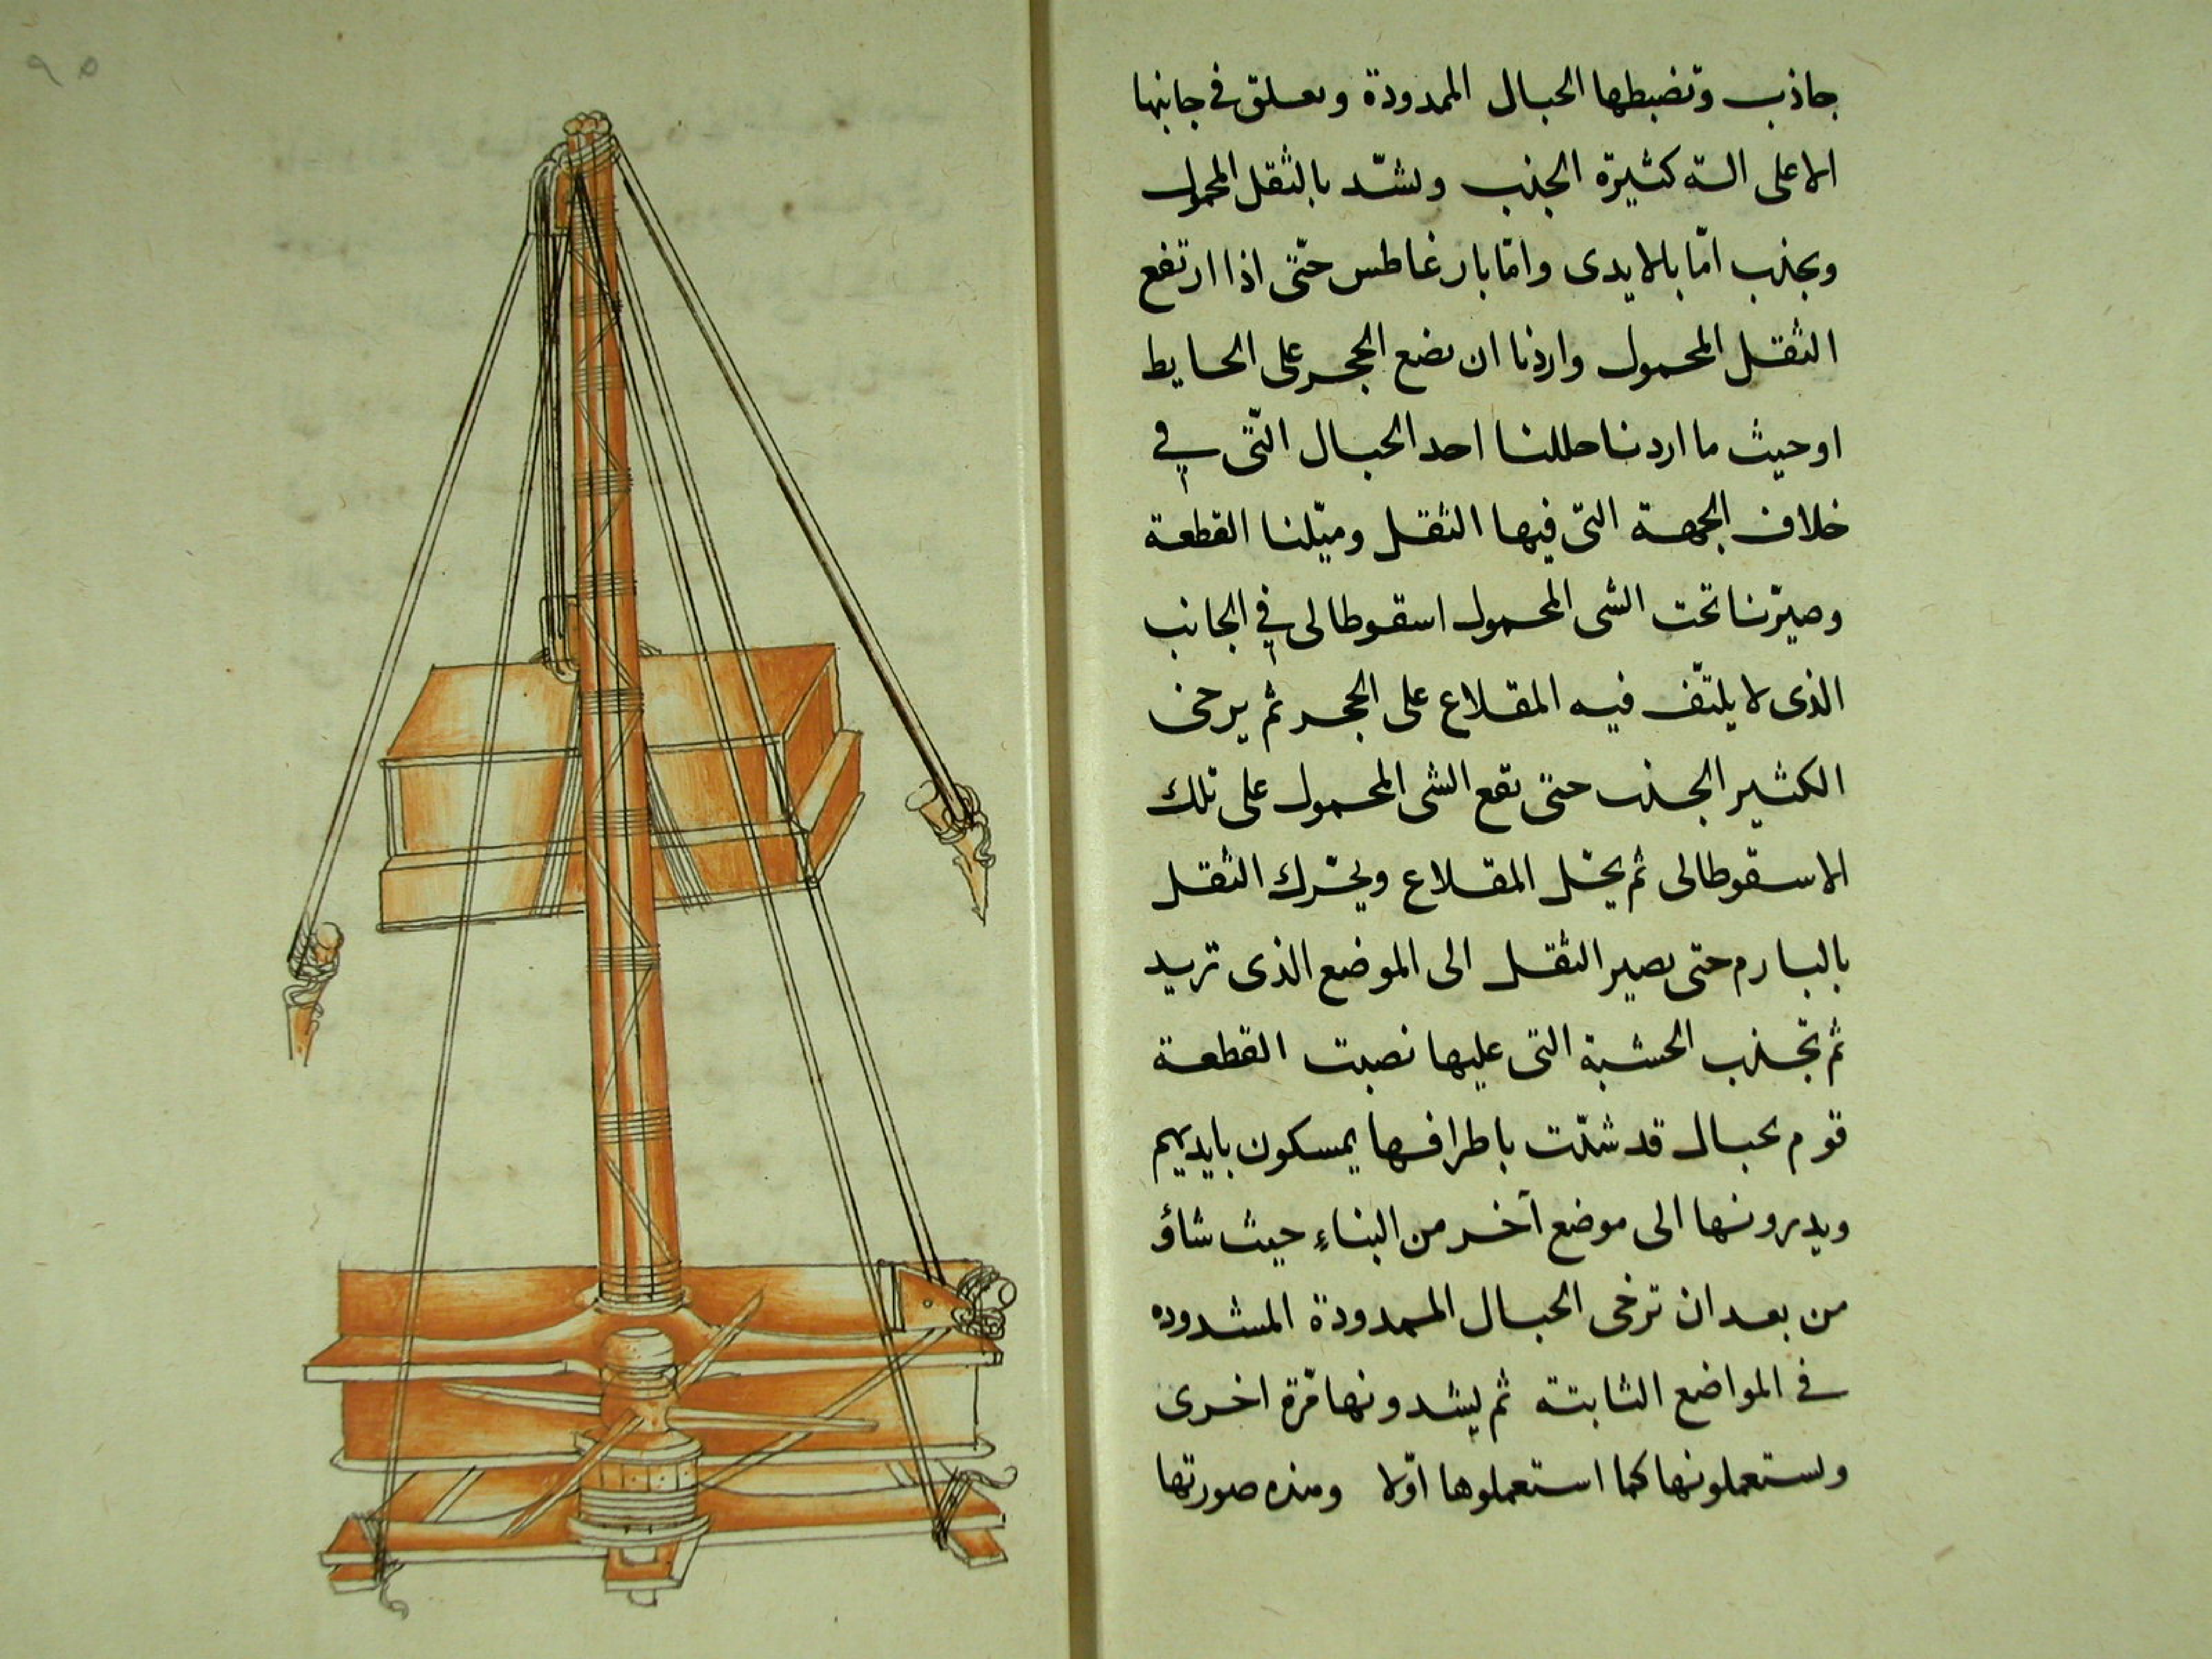 جاذب وتضبطها الحبال الممدودة وىعلق في جانبها
الاعلى الىة كثيرة الجذب ويشدّ بالثقل المحمول
وىجذب امّا بالايدى وامّا بارغاطس حتّى اذا ارتفع
الثقل المحمول واردنا ان نضع الحجر على الحايط
اوحيث ما اردنا حللنا احد الحبال التّى في
خلاف الجهة التى فيها الثقل وميّلنا القطعة
وصيّرنا تحت الشى المحمول اسقوطالى في الجانب
الذى لا يلتّف فيه المقلاع على الحجر ثم يرخى
الكثير الجذب حتّى تقع الشى المحمول على تلك
الاسقوطالى ثم يحّل المقلاع ويحّرك الثقل
بالبارم حتى يصير الثقل الى الموضع الذى تريد
ثم تجذب الخشبة التى عليها نصبت القطعة
قوم بحبال قد شدّت باطرافها يمسكون بايديهم
ويديرونها الى موضع آخر من البناء حيث شاؤ
من بعد ان ترخى الحبال الممدودة المشدوده
في المواضع الثابتة ثم يشدونها مّرة اخرى
ويستعملونها كما استعملوها اوّلا وهذه صورتها
٩٥